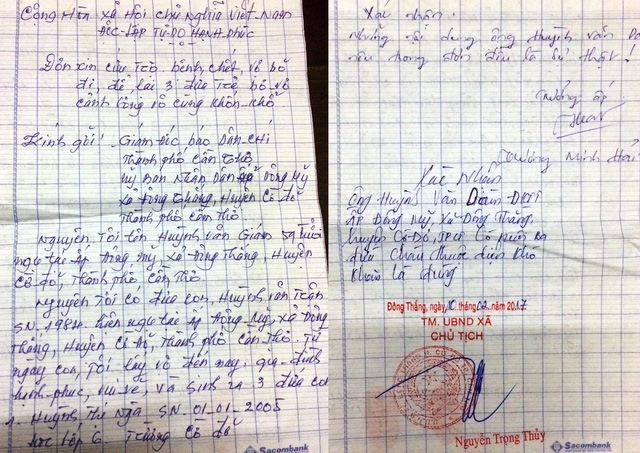 Cộng Hòa xã Hội chủ Nghĩa Việt Nam
ĐỘC-LẬP TỰ-DO HẠNH PHÚC
Đơn xin cứu trợ bệnh chết, vợ bỏ
đi, để lại 3 đứa trẻ bơ vơ
cảnh vô cùng khốn khổ
Kính gửi: Giám Đốc báo Dân-Chí
Thành phố Cần Thơ
Ủy Ban Nhân Dân Đông Mỹ
xã Đông Thắng, Huyện Cờ Đỏ
Thành phố Cần Thơ
Nguyên, Tôi tên Huỳnh văn 59 tuổi
ngụ tại ấp Đông Mỹ, xã Đông Thắng, Huyện
Cờ Đỏ, Thành phố Cần Thơ
Nguyên Tôi có đứa con, Huỳnh văn
SN. 1984. hiện ngụ tại ấp Đông Mỹ, xã Đông
Thắng, Huyện Cờ Đỏ, Thành phố Cần Thơ. Từ
ngày con, Tôi lấy vợ đến nay, gia-đình
hạnh-phúc, vui vẻ, và sinh ra 3 đứa con
1. Huỳnh Thị Ngã SN. 01-01-2005
học lớp 6. Trường Cờ Đỏ
Sacombank
Xác nhận.
Những nội dung ông Huỳnh văn
nêu trong đơn đều là sự thật!
Trưởng ấp
Trương Minh
Xác Nhận
Ông Huỳnh Văn
ấp Đông Mỹ, Xã Đông Thắng,
huyện Cờ Đỏ, TPCT Có
cháu thuộc diện khó
khăn là đúng
Đông Thắng, ngày 10 tháng 02 năm 2017
TM. UBND XÃ
CHỦ TỊCH
Nguyễn Trọng Thủy
Sacombank